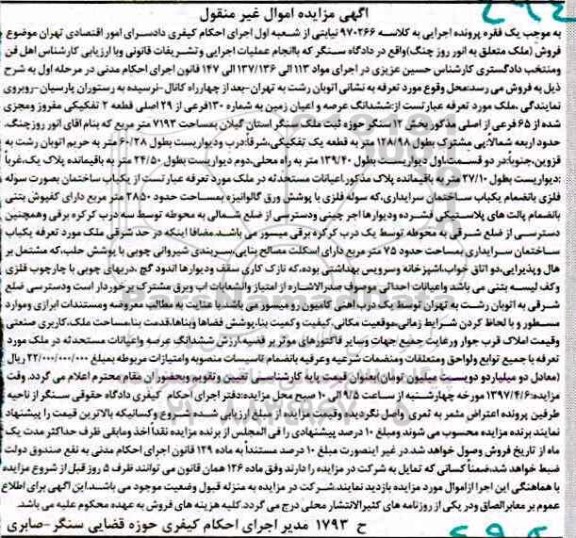 آگهی مزایده اموال غیر منقول
به موجب یک فقره پرونده اجرایی به کلاسه ۹۷۰۲۶۶ نیابتی از شعبه اول اجرای احکام کیفری دادسرای امور اقتصادی تهران موضوع
فروش (ملک متعلق به انور روز چنگ)واقع در دادگاه سنگر که باانجام عملیات اجرایی و تشریفات قانونی وبا ارزیابی کارشناس اهل فن
ومنتخب دادگستری کارشناس حسین عزیزی در اجرای مواد ۱۱۳ الی ۱۳۷/۱۳۶ الی ۱۴۷ قانون اجرای احکام مدنی در مرحله اول به شرح
ذیل به فروش می رسد:محل وقوع مورد تعرفه به نشانی اتوبان رشت به تهران-بعد از چهارراه کانال-نرسیده به رستوران پارسیان-روبروی
نمایندگی ،ملک مورد تعرفه عبارتست از:ششدانگ عرصه و اعیان زمین به شماره ۱۳۰فرعی از ۲۹ اصلی قطعه ۲ تفکیکی مفروز ومجزی
شده از ۶۵ فرعی از اصلی مذکوربخش ۱۲ سنگر حوزه ثبت ملک سنگر استان گیلان بمساحت ۷۱۹۳ متر مربع که بنام اقای انور روزچنگ،
حدود اربعه شمالاپی مشترک بطول ۱۲۸/۹۸ متر به قطعه یک تفکیکی،شرقا:درب ودیواریست بطول ۶۰/۲۸ متر به حریم اتوبان رشت به
قزوین،جنوبا:در دو قسمت،اول دیواریست بطول ۱۳۹/۴۰ متر به راه محلی،دوم دیواریست بطول ۲۴/۵۰ متر به باقیمانده پلاک یک،غربا
:دیواریست بطول ۳۷/۱۰ متر به باقیمانده پلاک مذکور.اعیانات مستحدثه در ملک مورد تعرفه عبارتست از یکباب ساختمان بصورت سوله
فلزی بانضمام یکباب ساختمان سرایداری،که سوله فلزی با پوشش ورق گالوانیزه بمساحت حدود ۲۸۵۰ متر مربع دارای کفپوش بتنی
بانضمام پالت های پلاستیکی فشرده ودیوارها اجر چینی ودسترسی از ضلع شمالی به محوطه توسط سه درب کرکره برقی وهمچنین
دسترسی از ضلع شرقی به محوطه توسط یک درب کرکره برقی میسور می باشد.مضافا اینکه در حد شرقی ملک مورد تعرفه یکباب
ساختمان سرایداری بمساحت حدود ۷۵ متر مربع دارای اسکلت مصالح بنایی،سربندی شیروانی چوبی با پوشش حلب،که مشتمل بر
هال وپذیرایی،دو اتاق خواب،اشپزخانه وسرویس بهداشتی بوده،که نازک کاری سقف ودیوارها اندود گچ ،دربهای چوبی با چارچوب فلزی
وکف لیسه بتنی می باشد واعیانات احداثی موصوف صدرالاشاره از امتیاز وانشعابات اب وبرق مشترک برخوردار است ودسترسی ضلع
شرقی به اتوبان رشت به تهران توسط یک درب اهنی کامیون رو میسور می باشد. با عنایت به مطالب معروضه ومستندات ابرازی وموارد
مسطور و با لحاظ کردن شرایط زمانی،موقعیت مکانی،کیفیت و کمیت بنا،پوشش فضاها وبناها،قدمت بنا،مساحت ملک،کاربری صنعتی
وقیمت املاک قرب جوار ورعایت جمیع جهات وسایر فاکتورهای موثر بر قضیه،ارزش ششدانگ عرصه واعیانات مستحدثه در ملک مورد
تعرفه با جمیع توابع ولواحق ومتعلقات ومنضمات شرعیه وعرفیه بانضمام تاسیسات منصوبه وامتیازات مربوطه بمبلغ ۲۲/۰۰۰/۰۰۰/۰۰۰ ریال
(معادل دو میلیارد و دویست میلیون تومان)بعنوان قیمت پایه کارشناسی تعیین وتقویم وبحضورتان مقام محترم اعلام می گردد. وقت
مزایده:۱۳۹۷/۴/۶ مورخه چهارشنبه از ساعت ۹/۵ الی ۱۰ صبح محل مزایده:دفتر اجرای احکام کیفری دادگاه حقوقی سنگر از ناحیه
طرفین پرونده اعتراض مثمر به ثمری واصل نگردیده وقیمت مزایده از مبلغ ارزیابی شده شروع وکسانیکه بالاترین قیمت را پیشنهاد
نمایند برنده مزایده محسوب می شوند ومبلغ ۱۰ درصد پیشنهادی را فی المجلس از برنده مزایده نقدا اخذ ومابقی ظرف حداکثر مدت یک
ماه از تاریخ فروش وصول خواهد شد.در غیر اینصورت مبلغ ۱۰ درصد مستندا به ماده ۱۲۹ قانون اجرای احکام مدنی به نفع صندوق دولت
ضبط خواهد شد،ضمنا کسانی که تمایل به شرکت در مزایده را دارند وفق ماده ۱۲۶ همان قانون می توانند ظرف ۵ روز قبل از شروع مزایده
با هماهنگی این اجرا ازاموال مورد مزایده بازدید نمایند.شرکت در مزایده به منزله قبول وضعیت موجود می باشند.این آگهی برای اطلاع
عموم بر معابرالصاق ودر یکی از روزنامه های کثیرالانتشار محلی درج می گردد.کلیه هزینه های فروش به عهده محکوم علیه می باشد.
ح ۱۷۹۳ مدیر اجرای احکام کیفری حوزه قضایی سنگر-صابری